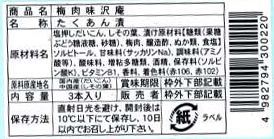 商品名 梅肉味沢庵
名称 たくあん漬
原材料名 塩押しだいこん、しその葉、漬け原材料[糖類(果糖ぶどう糖液糖、砂糖)、梅肉、醸造酢、ぬか類、食塩]
ソルビトール、甘味料(サッカリンNa)、調味料(アミノ酸等)、酸味料、増粘多糖類、酒精、保存料(ソルビン酸K)、ビタミンB1、香料、着色料(赤106、赤102)
原料原産地名 国内産(だいこん) 中国産(しその葉) 賞味期限 枠外下部記載
内容量 3本入り 製造者 枠外下部に記載
直射日光を避けて、開封後は10℃以下にて保存し、10日以内にお召し上がり下さい。
紙 ラベル
4 982794 300220